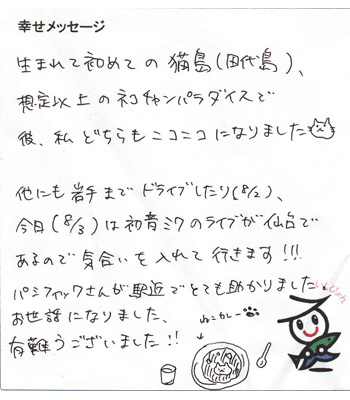 幸せメッセージ
生まれて初めての猫島(田代島)、
想定以上のネコチャンパラダイスで
彼、私どちらもニコニコになりました
他にも岩手までドライブしたり(8/2)、
今日(8/3)は初音ミクのライブが仙台で
あるので気合いを入れて行きます!!!
パシフィックさんが駅近でとても助かりました。
お世話になりました、
有難うございました!!
ねこカレー